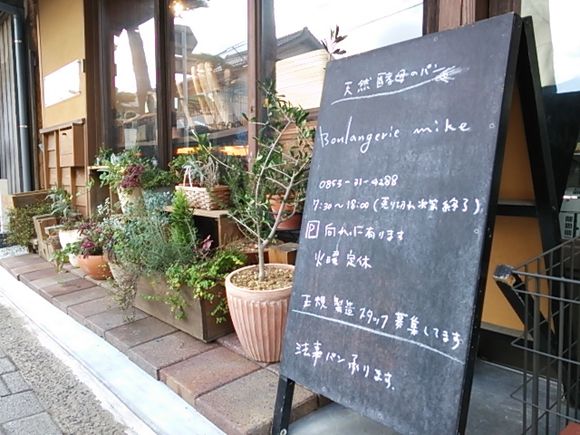 天然酵母のパン
Boulangerie mike
0853-31-4288
7:30〜18:00(売り切れ次第終了)
P 向かいにあります
火曜定休
正規製造スタッフ募集してます
法事パン承ります。